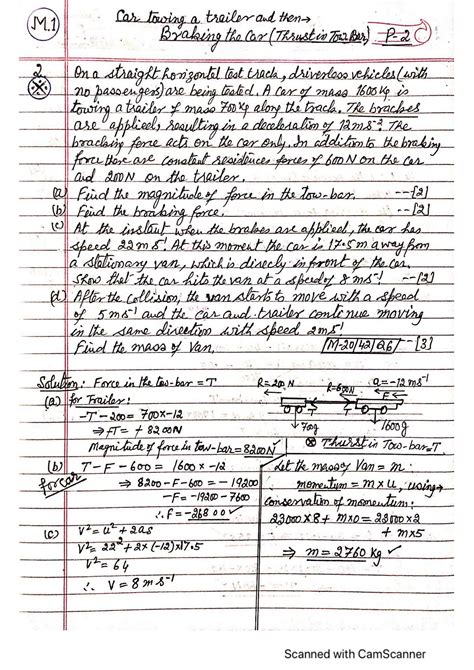 M.1
Car towing a trailer and then→
Braking the Car (Thrust in Tow Bar) P-2
2 On a straight horizontal test track, driverless vehicles (with
no passengers) are being tested. A car of mass 1600 kg is
towing a trailer of mass 700 kg along the track. The brackes
are applied, resulting in a deceleration of 12 ms⁻² The
bracking force acts on the car only. In addition to the braking
force there are constant resistance forces of 600 N on the car
and 200 N on the trailer.
(a) Find the magnitude of force in the tow-bar. ---[2]
(b) Find the braking force. ---[2]
(c) At the instant when the brakes are applied, the car has
speed 22 ms⁻¹. At this moment the car is 17.5 m away from
a stationary van, which is direcly in front of the car.
Show that the car hits the van at a speed of 8 ms⁻¹ ---[2]
(d) After the collision, the van starts to move with a speed
of 5 ms⁻¹ and the car and trailer continue moving
in the same direction with speed 2 ms⁻¹
Find the mass of Van. M-20/42/Q6 -[3]
Solution: Force in the tow-bar = T
(a) for Trailer:
-T-200 = 700×-12
⇒ T = + 8200 N
Magnitude of force in tow-bar = 8200 N ✓
R=200N R=600N a=-12 ms⁻¹
T T F←
700g 1600g
⊗ Thurst in Tow-bar=T
(b) T-F-600 = 1600 × -12
for car ⇒ 8200-F-600 = -19200
-F = -19200-7600
∴ F = -26800 ✓
(c) V² = u² + 2as
V² = 22² + 2×(-12)×17.5
V² = 64
∴ V = 8 ms⁻¹
Let the mass of Van = m
momentum = m×u, using→
Conservation of momentum:
23000×8 + m×0 = 23000×2
+ m×5
⇒ m = 2760 kg ✓
Scanned with CamScanner